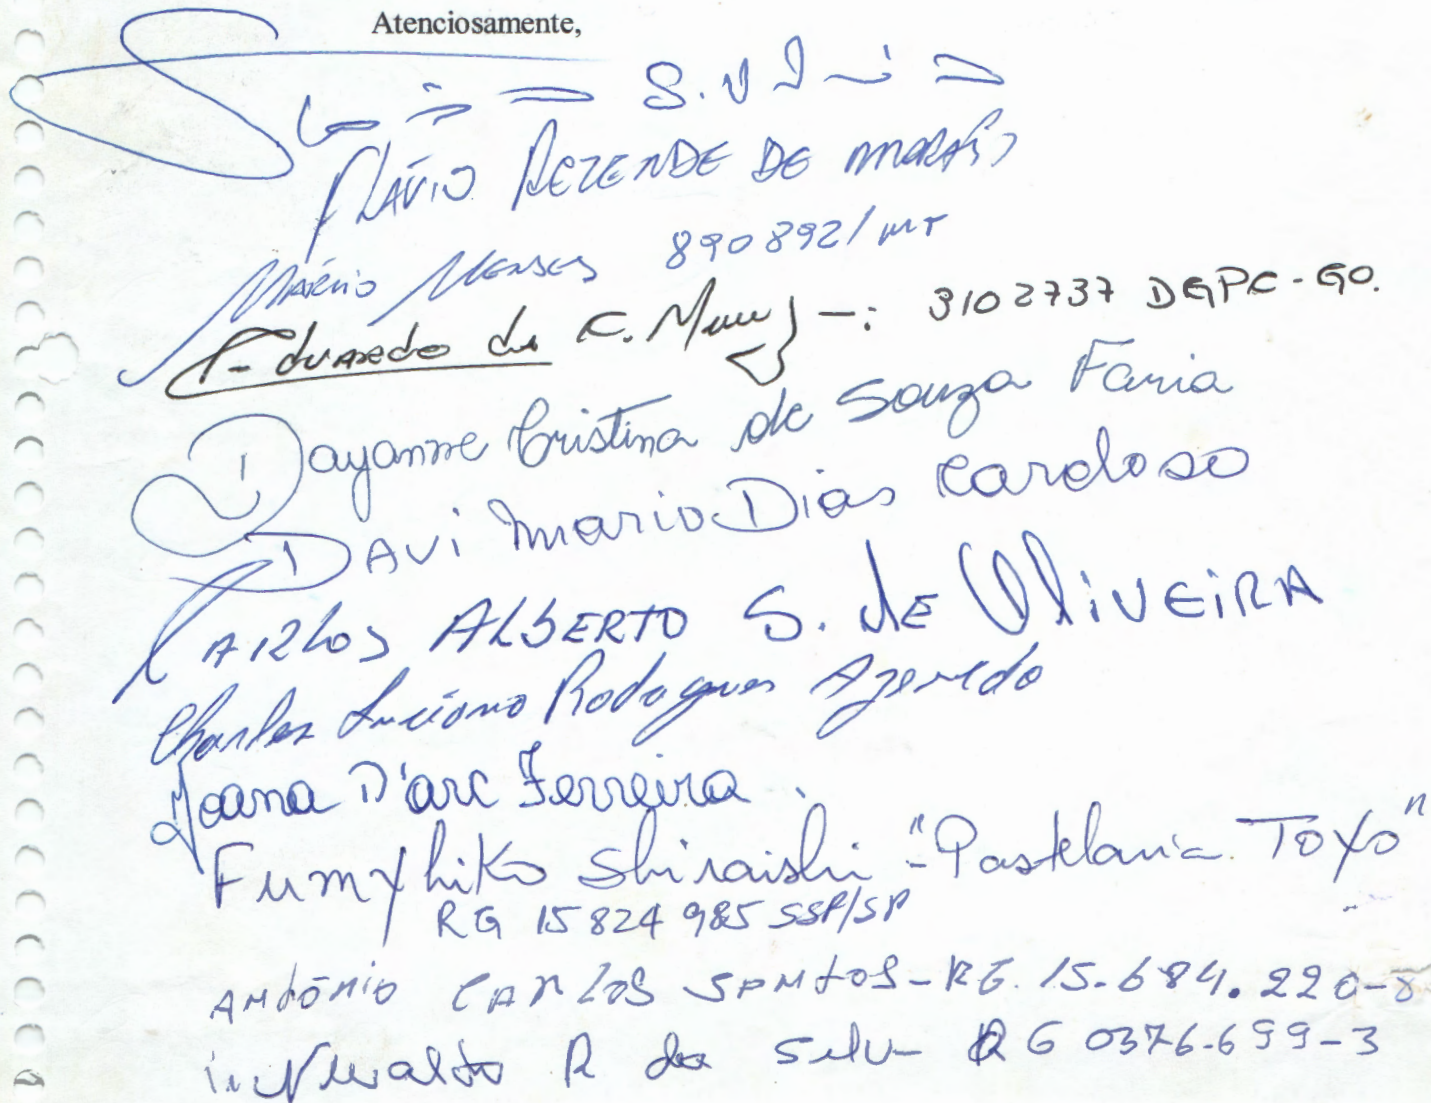 Atenciosamente,
FLÁVIO REZENDE DE MORAIS
MÁRCIO MENSES 890892/MT
Eduardo de C. 3102737 DGPC-GO.
Dayanne Cristina de Souza Faria
DAVI Mario Dias Cardoso
CARLOS ALBERTO S. de OLIVEIRA
Charles Luciano Rodrigues Azevedo
Joana D'arc Ferreira.
Fumyhiko Shiraishi - "Pastelaria TOYO"
RG 15824985 SSP/SP
ANTÔNIO CARLOS SANTOS - RG. 15.684.220-8
R da Silva RG 0376.699-3